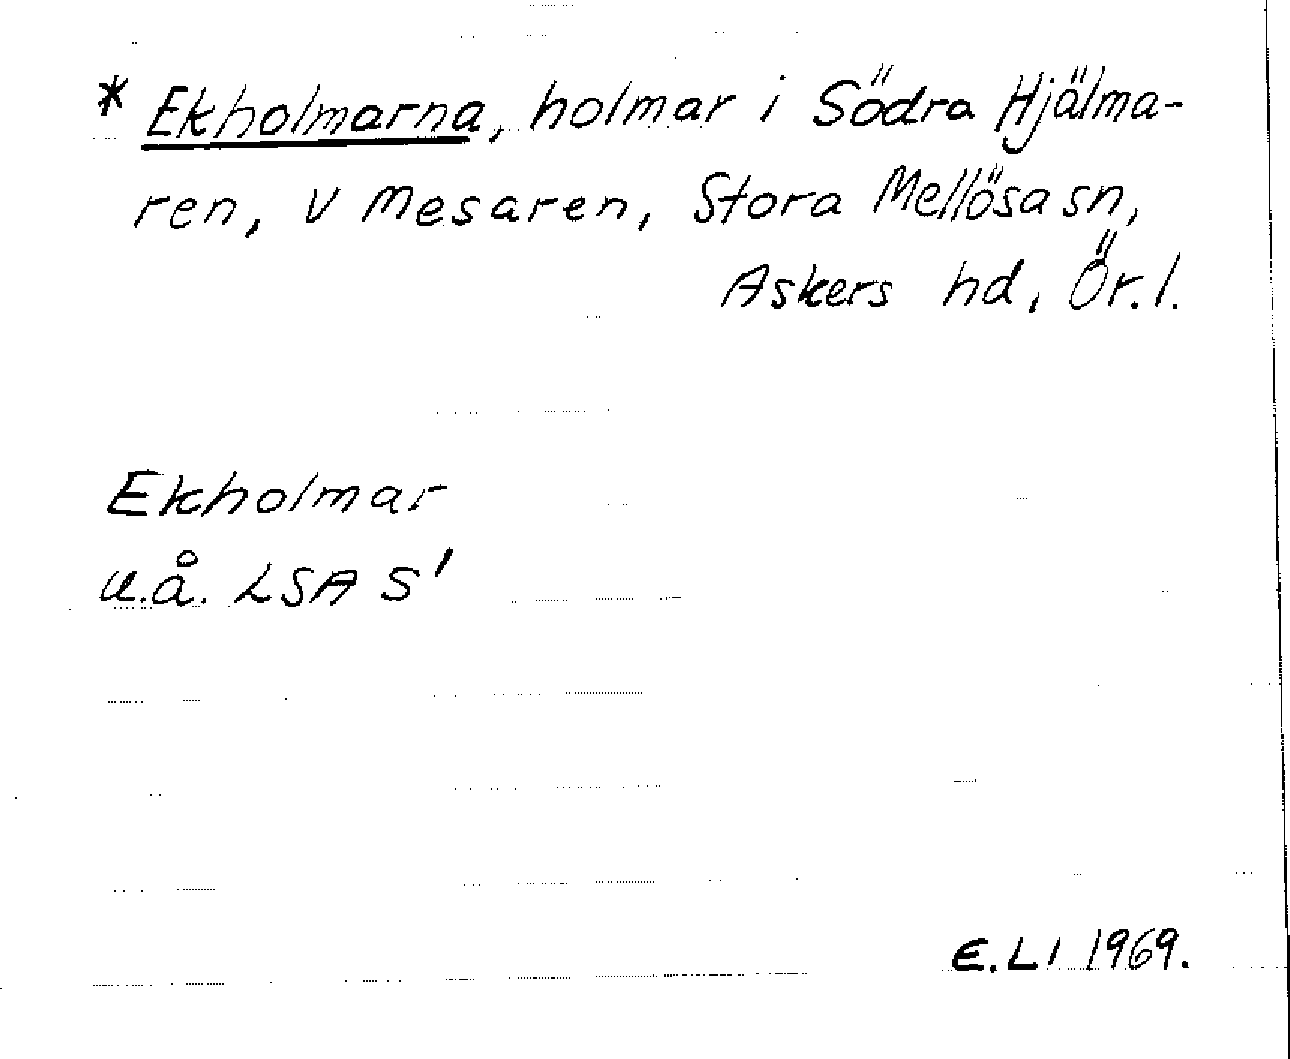 * Ekholmarna, holmar i Södra Hjälma-
ren, V Mesaren, Stora Mellösa sn,
Askers hd, Ör. l.
Ekholmar
u.å. LSA S'
E. LI 1969.